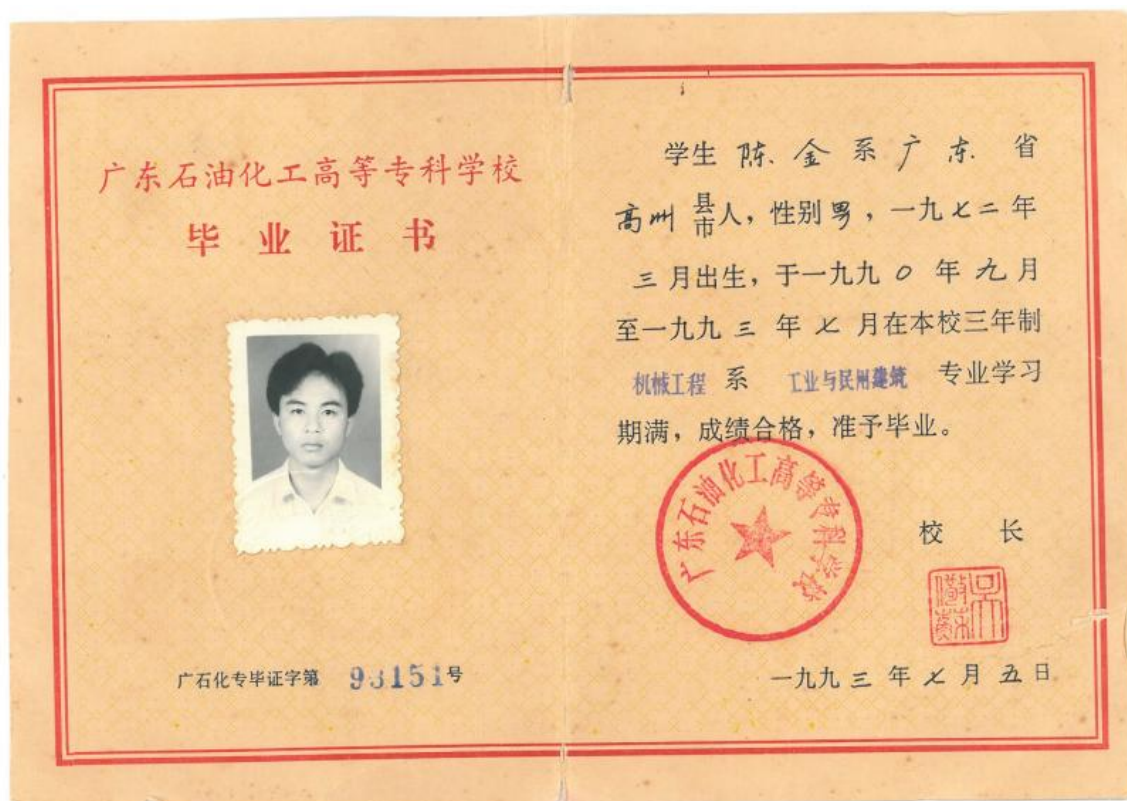 广东石油化工高等专科学校
毕业证书
广石化专毕证字第 93151号
学生 陈金 系 广东 省
高州 县市人，性别男，一九七二年
三月出生，于一九九〇年九月
至一九九三年七月在本校三年制
机械工程 系 工业与民用建筑 专业学习
期满，成绩合格，准予毕业。
广东石油化工高等专科学校
校长
一九九三年七月五日